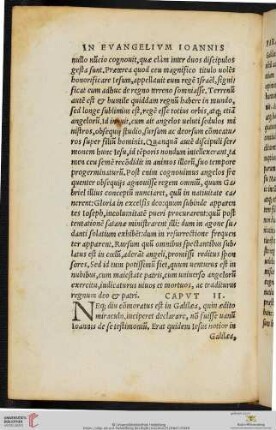 IN EVANGELIVM IOANNIS
nullo nūcio cognouit, quæ etiam inter duos discipulos
gesta sunt. Præterea quod eum magnifico titulo volēs
honorificare Iesum, appellauit eum regē Israël, signifi
cat eum adhuc de regno terreno somniasse. Terrenū
autē est & humile quiddam regnū habere in mundo,
sed longe sublimius est, regē esse totius orbis, atq; etiā
angelorū, id innuit, cum ait angelos veluti sedulos mi
nistros, obsequij studio, sursum ac deorsum cōmeatu=
ros super filiū hominis. Quanquā autē discipuli ser=
monem hunc Iesu, id tēporis nondum intelligebant, ta
men ceu semē recōdidit in animos illorū, suo tempore
progerminaturū. Post enim cognouimus angelos fre
quenter obsequijs agnouisse regem omniū, quum Ga
briel illius conceptū nunciaret, qui in natiuitate ca=
nerent: Gloria in excelsis deo: quum subinde apparen
tes Ioseph, incolumitati pueri procurarent: quū post
tentationē satanæ ministrarent illi: dum in agone su=
danti solatium exhiberent: dum in resurrectione frequen
ter apparent. Rursum quū omnibus spectantibus sub=
latus est in cœlū, aderāt angeli, promissa reditus spon
sores. Sed id tum potissimū fiet, quum venturus est in
nubibus, cum maiestate patris, cum vniuerso angelorū
exercitu, iudicaturus viuos et mortuos, ac traditurus
regnum deo & patri. CAPVT II.
NEq; diu cōmoratus est in Galilæa, quin ædito
miraculo, inciperet declarare, nō fuisse vanū
Ioannis de se testimoniū. Erat quidem Iesus notior in
Galilæa,